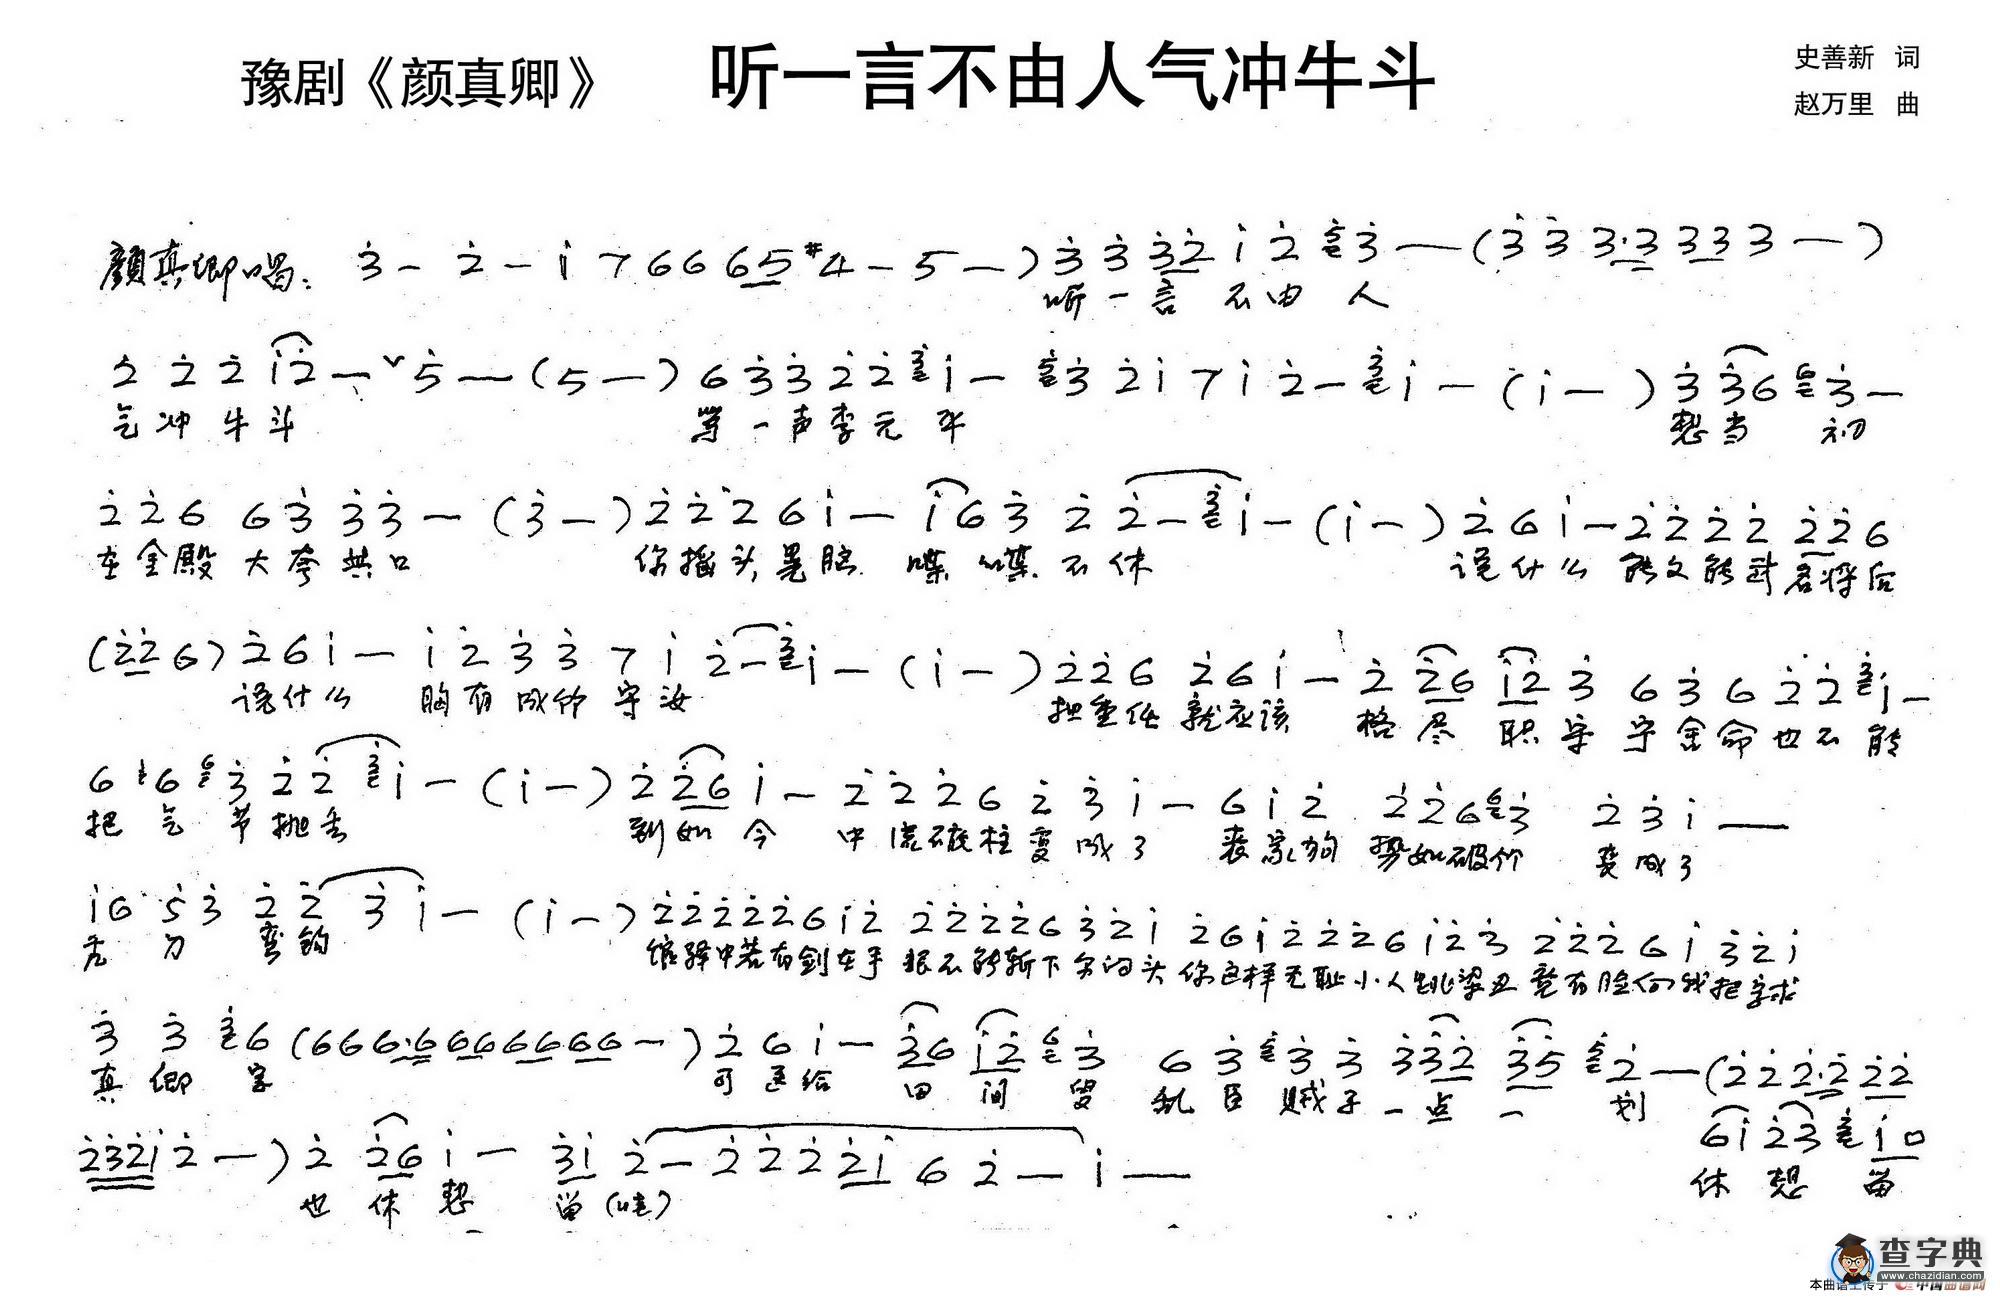 豫剧《颜真卿》 听一言不由人气冲牛斗
史善新 词
赵万里 曲
颜真卿唱: 3 - 2 - i 7 6 6 6 5 #4 - 5 - ) 3 3 3 2 i 2 3 — ( 3 3 3 · 3 3 3 3 — )
听一言不由人
2 2 2 i 2 — ˅ 5 — ( 5 — ) 6 3 3 2 2 i — 3 2 i 7 i 2 — i — ( i — ) 3 3 6 3 —
气冲牛斗 骂一声李元平 想当初
2 2 6 6 3 3 3 — ( 3 — ) 2 2 2 6 i — i 6 3 2 2 — i — ( i — ) 2 6 i — 2 2 2 2 2 2 6
在金殿大夸其口 你摇头晃脑喋喋不休 说什么能文能武君将后
( 2 2 6 ) 2 6 i — i 2 3 3 7 i 2 — i — ( i — ) 2 2 6 2 6 i — 2 2 6 i 2 3 6 3 6 2 2 i —
说什么胸有成竹守汝 担重任就应该格尽职守 守余命也不能
6 6 3 2 2 i — ( i — ) 2 2 6 i — 2 2 2 6 2 3 i — 6 i 2 2 2 6 3 2 3 i —
把气节抛丢 到如今中流砥柱变成了丧家狗 势如破竹变成了
i 6 5 3 2 2 3 i — ( i — ) 2 2 2 2 2 6 i 2 2 2 2 2 6 3 2 i 2 6 i 2 2 2 6 i 2 3 2 2 2 6 i 3 2 i
无刃弯钩 馆驿中若有剑在手 狠不能斩下尔的头 你这样无耻小人跳梁丑 竟有脸向我把字求
3 3 6 ( 6 6 6 · 6 6 6 6 6 6 6 — ) 2 6 i — 3 6 i 2 3 6 3 3 3 3 3 2 3 5 2 — ( 2 2 2 · 2 2 2
真卿字 可送给田间叟 乱臣贼子一点一划
2 3 2 i 2 — ) 2 2 6 i — 3 i 2 — 2 2 2 2 i 6 2 — i — 6 i 2 3 i 0
也休想留(哇) 休想留
查字典
www.chazidian.com
本曲谱上传于 中国曲谱网